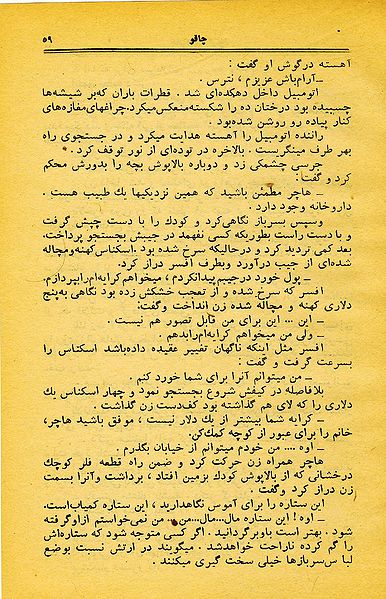 چاقو ۵۹
آهسته در گوش او گفت :
ــ آرام باش عزیزم ، نترس .
اتومبیل داخل دهکده‌ای شد . قطرات باران که بر شیشه‌ها
چسبیده بود درختان ده را شکسته منعکس میکرد. چراغهای مغازه‌های
کنار پیاده رو روشن شده بود .
راننده اتومبیل را آهسته هدایت میکرد و در جستجوی راه
بهر طرف مینگریست . بالاخره در توده‌ای از نور توقف کرد .
جرسی چشمکی زد و دوباره بالاپوش بچه را بدورش محکم
کرد و گفت :
ــ هاچر مطمئن باشید که همین نزدیکیها یك طبیب هست .
داروخانه وجود دارد .
وسپس سرباز نگاهی کرد و کودك را با دست چپش گرفت
و با دست راست بطوریکه کسی نفهمد در جیبش بجستجو پرداخت.
بعد کمی تردید کرد و درحالیکه سرخ شده بود. اسکناس کهنه ومچاله
شده‌ای از جیب درآورد وبطرف افسر دراز کرد.
ــ پول خورد درجیبم پیدانکردم ، میخواهم کرایه‌ام رابپردازم.
افسر که سرخ شده و از تعجب خشکش زده بود نگاهی به پنج
دلاری کهنه و مچاله شده زن انداخت وگفت:
ــ این ... این برای من قابل تصور هم نیست .
ــ ولی من میخواهم کرایه‌ام رابدهم .
افسر مثل اینکه ناگهان تغییر عقیده داده‌باشد اسکناس را
بسرعت گرفت و گفت :
ــ من میتوانم آنرا برای شما خورد کنم .
بلافاصله در کیفش شروع بجستجو نمود و چهار اسکناس یك
دلاری را که لای هم گذاشته بود کف‌دست زن گذاشت .
ــ کرایه شما بیشتر از یك دلار نیست ، موفق باشید هاچر،
خانم را برای عبور از کوچه کمك کن.
ــ اوه .... من خودم میتوانم از خیابان بگذرم .
هاچر همراه زن حرکت کرد و ضمن راه قطعه فلز کوچك
درخشانی که از بالاپوش کودك بزمین افتاد ، برداشت وآنرا بسمت
زن دراز کرد وگفت .
این ستاره را برای آموس نگاهدارید ، این ستاره کمیاب‌است.
ــ اوه ! این ستاره مال...مال...من.. من نمی‌خواستم ازاوگرفته
شود . بهتر است باوبرگردانید . اگر کسی متوجه شود که ستاره‌اش
را گم کرده ناراحت خواهدشد . میگویند در ارتش نسبت بوضع
لباس سربازها خیلی سخت گیری میکنند .